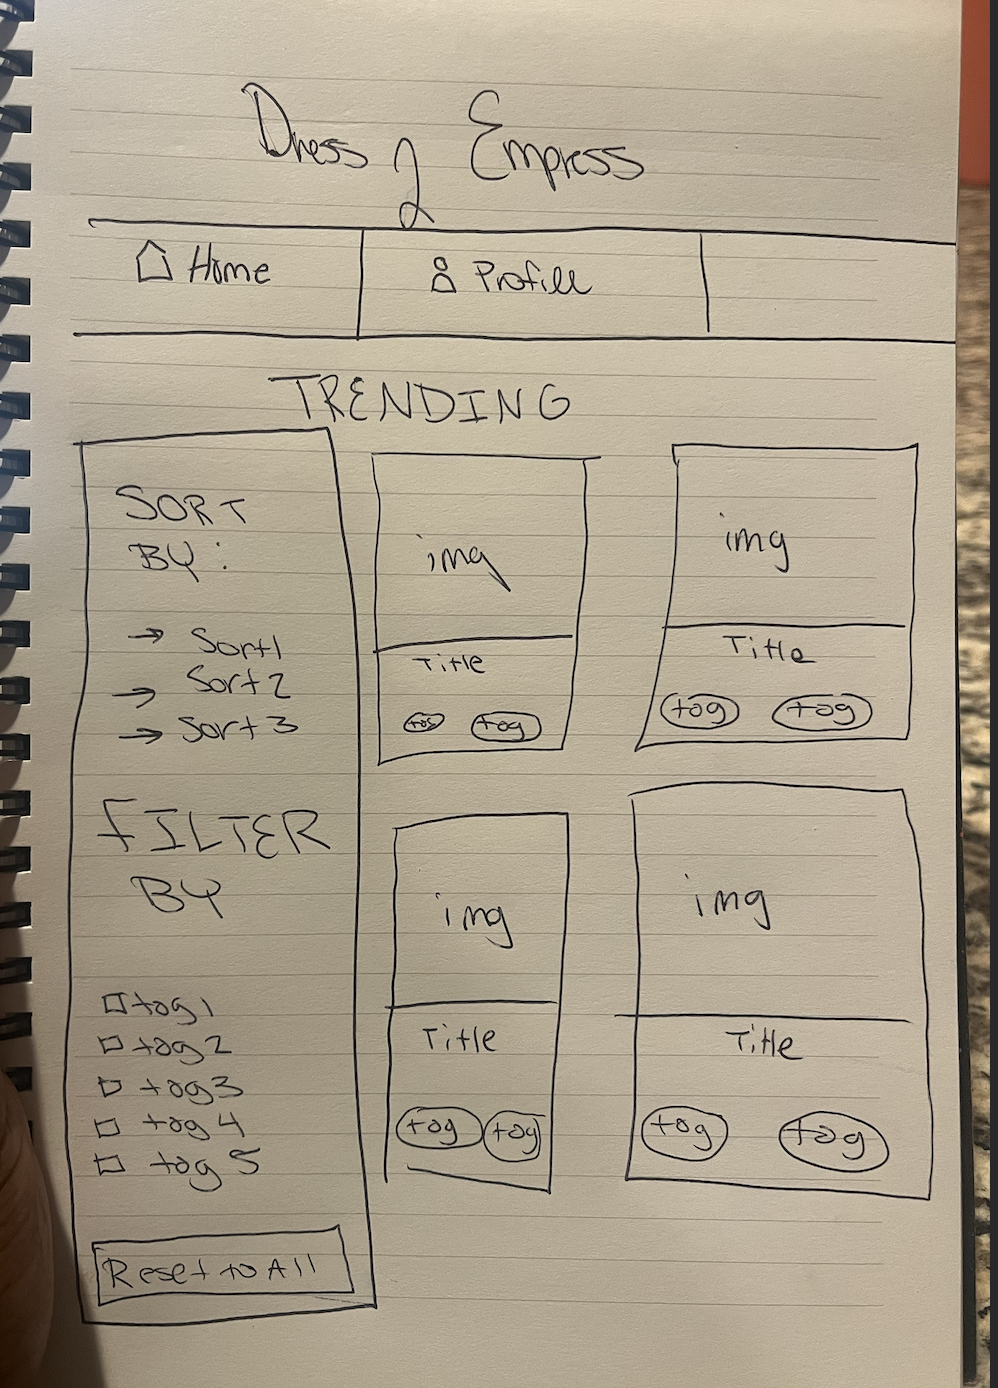 Dress 2 Empress
Home
Profile
TRENDING
SORT
BY:
→ Sort1
→ Sort 2
→ Sort 3
FILTER
BY
tag1
tag 2
tag 3
tag 4
tag 5
Reset to All
img
Title
tag tag
img
Title
tag tag
img
Title
tag tag
img
Title
tag tag